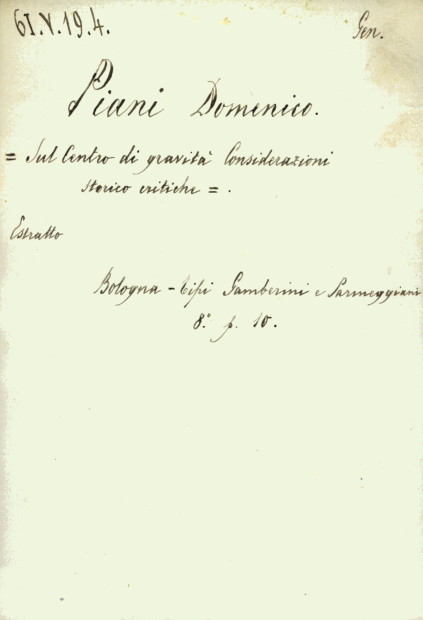 61.V.19.4.
Gen.
Piani Domenico.
= Sul Centro di gravità Considerazioni
storico critiche = .
Estratto
Bologna - tipi Gamberini e Parmeggiani
8.° p. 10.